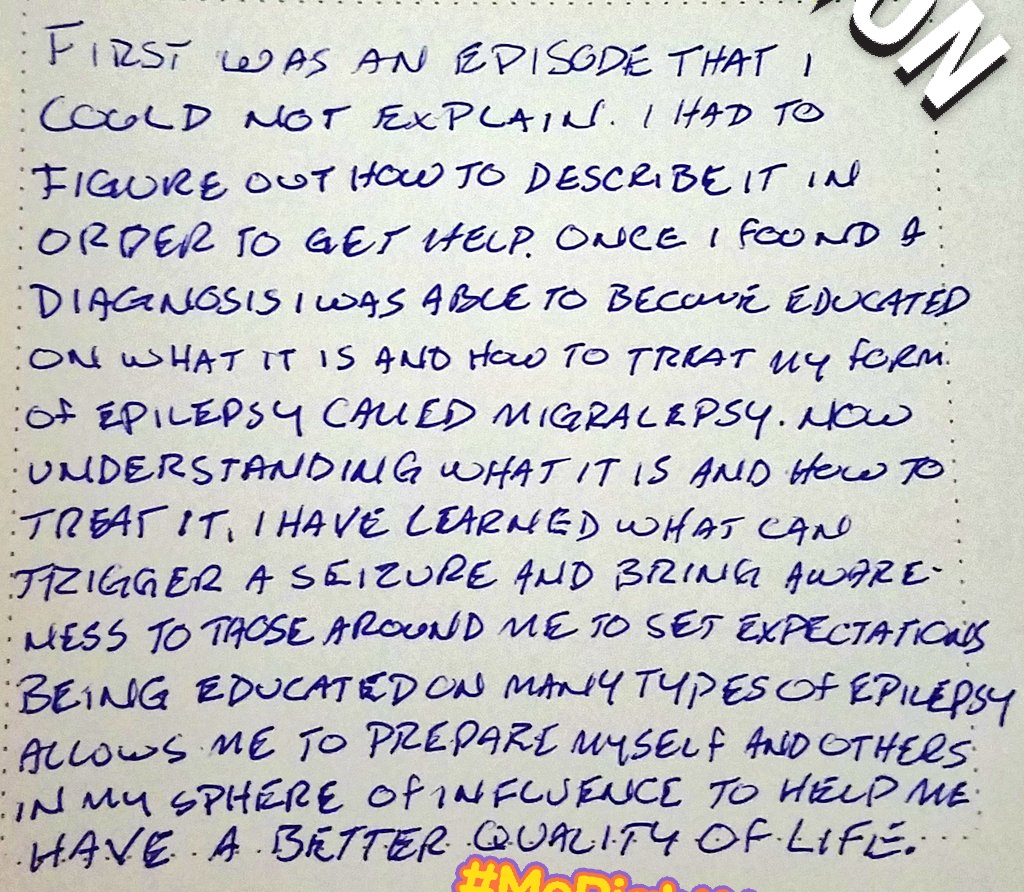 ON
FIRST WAS AN EPISODE THAT I
COULD NOT EXPLAIN. I HAD TO
FIGURE OUT HOW TO DESCRIBE IT IN
ORDER TO GET HELP. ONCE I FOUND A
DIAGNOSIS I WAS ABLE TO BECOME EDUCATED
ON WHAT IT IS AND HOW TO TREAT MY FORM
OF EPILEPSY CALLED MIGRALEPSY. NOW
UNDERSTANDING WHAT IT IS AND HOW TO
TREAT IT, I HAVE LEARNED WHAT CAN
TRIGGER A SEIZURE AND BRING AWARE-
NESS TO THOSE AROUND ME TO SET EXPECTATIONS
BEING EDUCATED ON MANY TYPES OF EPILEPSY
ALLOWS ME TO PREPARE MYSELF AND OTHERS
IN MY SPHERE OF INFLUENCE TO HELP ME
HAVE A BETTER QUALITY OF LIFE.